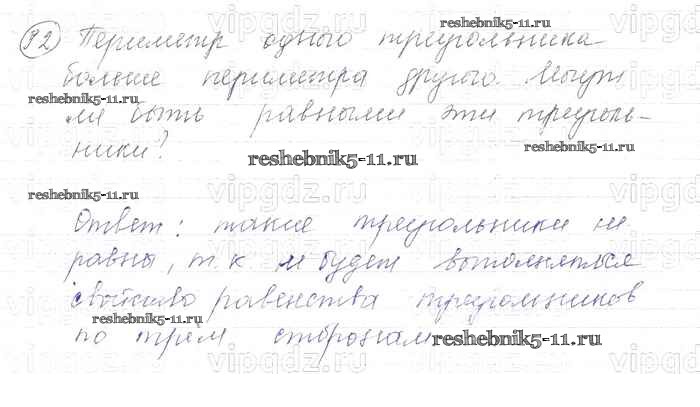 92) Периметр одного треугольника
больше периметра другого. Могут
ли быть равными эти треуголь-
ники?
Ответ: такие треугольники не
равны, т.к н будет выполняться
свойство равенства треугольников
по трём сторонам
reshebnik5-11.ru
reshebnik5-11.ru
reshebnik5-11.ru
reshebnik5-11.ru
reshebnik5-11.ru
reshebnik5-11.ru
reshebnik5-11.ru
vipgdz.ru